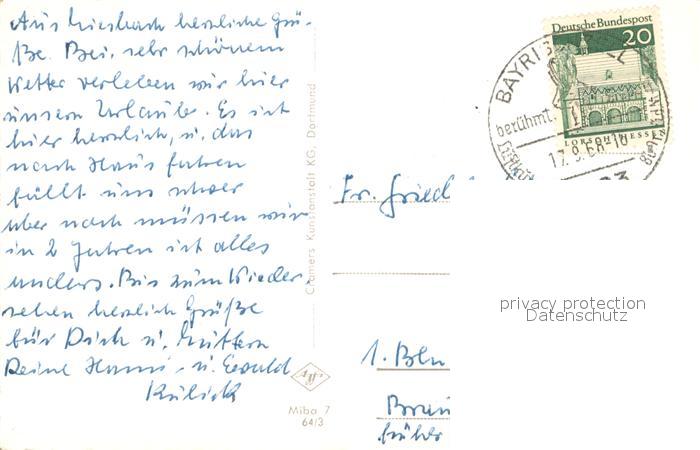 Aus Miesbach herzliche Grü-
ße. Bei sehr schönem
Wetter verleben wir hier
unsern Urlaub. Es ist
hier herrlich, u. das
nach Haus fahren
fällt uns schwer
aber noch müssen wir
in 2 Jahren ist alles
anders. Bis zum Wieder-
sehen herzlich Grüße
für Dich u. Muttern
Deine Hanni u. Ewald
Kulick
Cramers Kunstanstalt KG, Dortmund
Miba 7
64/3
Deutsche Bundespost
20
LORSCH/HESSEN
BAYRI
berühmt.
17.9.68-18
Fr. Fried
1. Bln
Brun
früher
privacy protection
Datenschutz